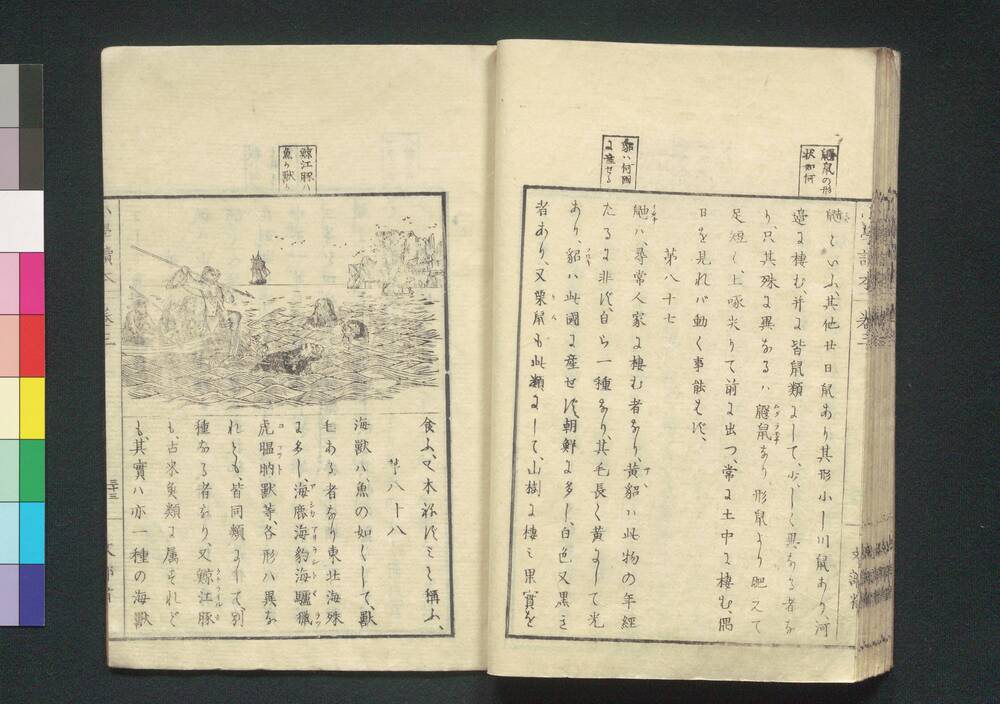 鼴鼠の形
状如何
貂ハ何國
に産せる
といふ、其他廿日鼠あり其形小し川鼠あり、河
邉に棲む、并に皆鼠類にして、少しく異なる者な
り、只其殊に異なるハ鼴鼠なり、形鼠より肥えて
足短く、上啄尖りて前に出つ、常に土中に棲む、偶
日を見れバ動く事能はず、
第八十七
鼬ハ、尋常人家に棲む者なり、黄貂ハ此物の年經
たるに非ず自ら一種なり、其毛長く黄にして光
あり、貂ハ此國に産せず朝鮮に多し、白色又黒き
者あり、又栗鼠も此類にして山樹に棲み果實を
鯨江豚ハ
魚か獸か
食ふ、又木ねずみと稱ふ、
第八十八
海獸ハ、魚の如くして、獸
毛ある者なり東北海殊
に多し海鹿海豹海驢獵
虎膃肭獸等、各形ハ異な
れとも、皆同類にして、別
種なる者なり、又鯨江豚
も、古来魚類に属すれど
も、其實ハ亦一種の海獸
小學讀本 卷三
三十三
文部省